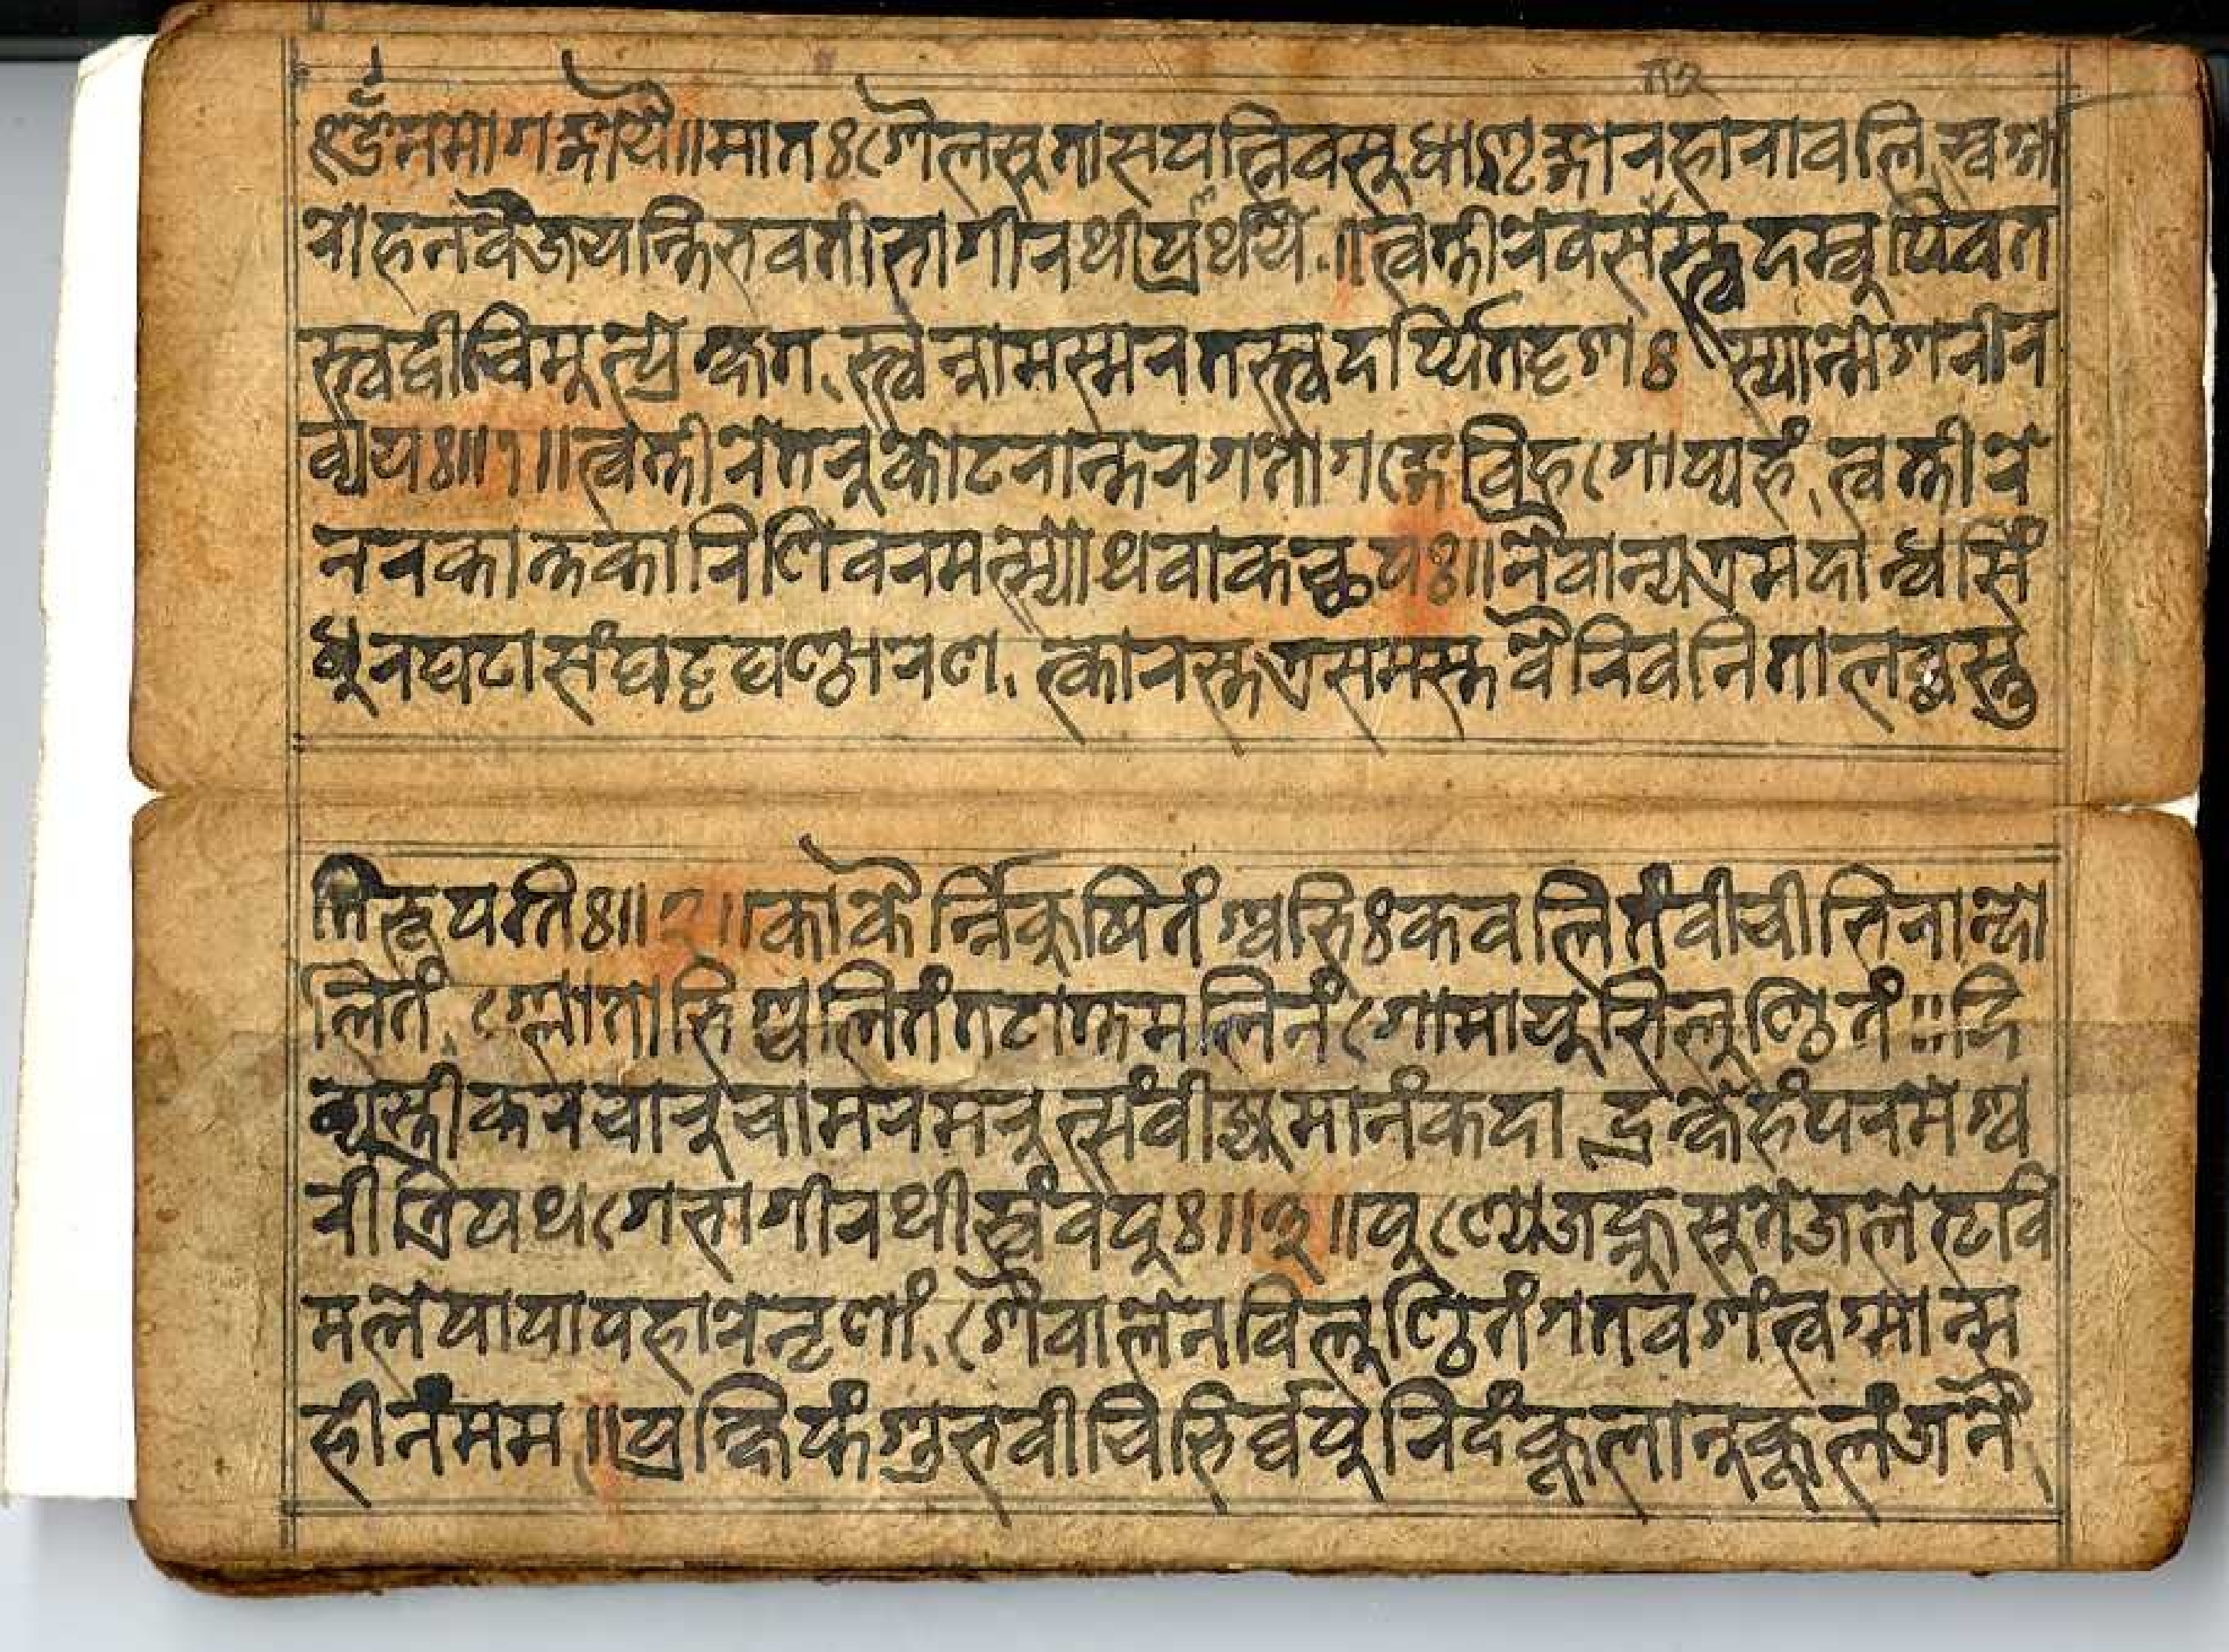 ॐनमोगङ्गायै॥मातःशैलसुतासपत्निवसुधाशृङ्गारहारावलिस्वर्गा
रोहनवैजयन्तिभवतीभागीरथीप्रार्थये॥त्वत्तीरेवसतस्त्वदम्बुपिवत
स्त्वद्वीचिमुत्प्रेङ्खत,स्त्वन्नामस्मरतस्त्वदर्प्पितदृशःस्यान्मेशरीर
व्ययः॥१॥त्वत्तीरेतरुकोटरान्तरगतोगङ्गेविहगोप्यहं,त्वत्तीरे
नरकान्तकारिणिवरमत्स्योथवाकच्छपः॥नैवान्यत्रमदान्धसिं
धुरघटासंघट्टघण्ठारण,त्कारस्तत्रसमस्तवैरिवनितालब्धस्तु
तिर्भूपतिः॥२॥काकैर्न्निकुषितंश्वभिःकवलितंवीचीभिरान्दो
लितं,श्रोतोभिश्चलितंतटान्तमलिनंगोमायुभिलुण्ठितं॥दि
व्यस्त्रीकरेचारुचामरमरुत्संवीज्यमानंकदाद्रक्षेहंपरमेश्व
रीत्रिपथगेभागीरथीस्वंवपुः॥३॥पुण्येजह्नुसुतेजलेत्यवि
मलेपापापहारेनृणां,शैवालेनविलुण्ठितंगतवशंत्वग्मान्स
हीनंमम॥प्रक्षिप्तंशुभवीचिभिर्व्वपुरिदंकूलानुकूलंजनै